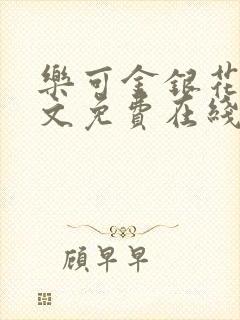 樂可金銀花
文免費在綫
顧早早